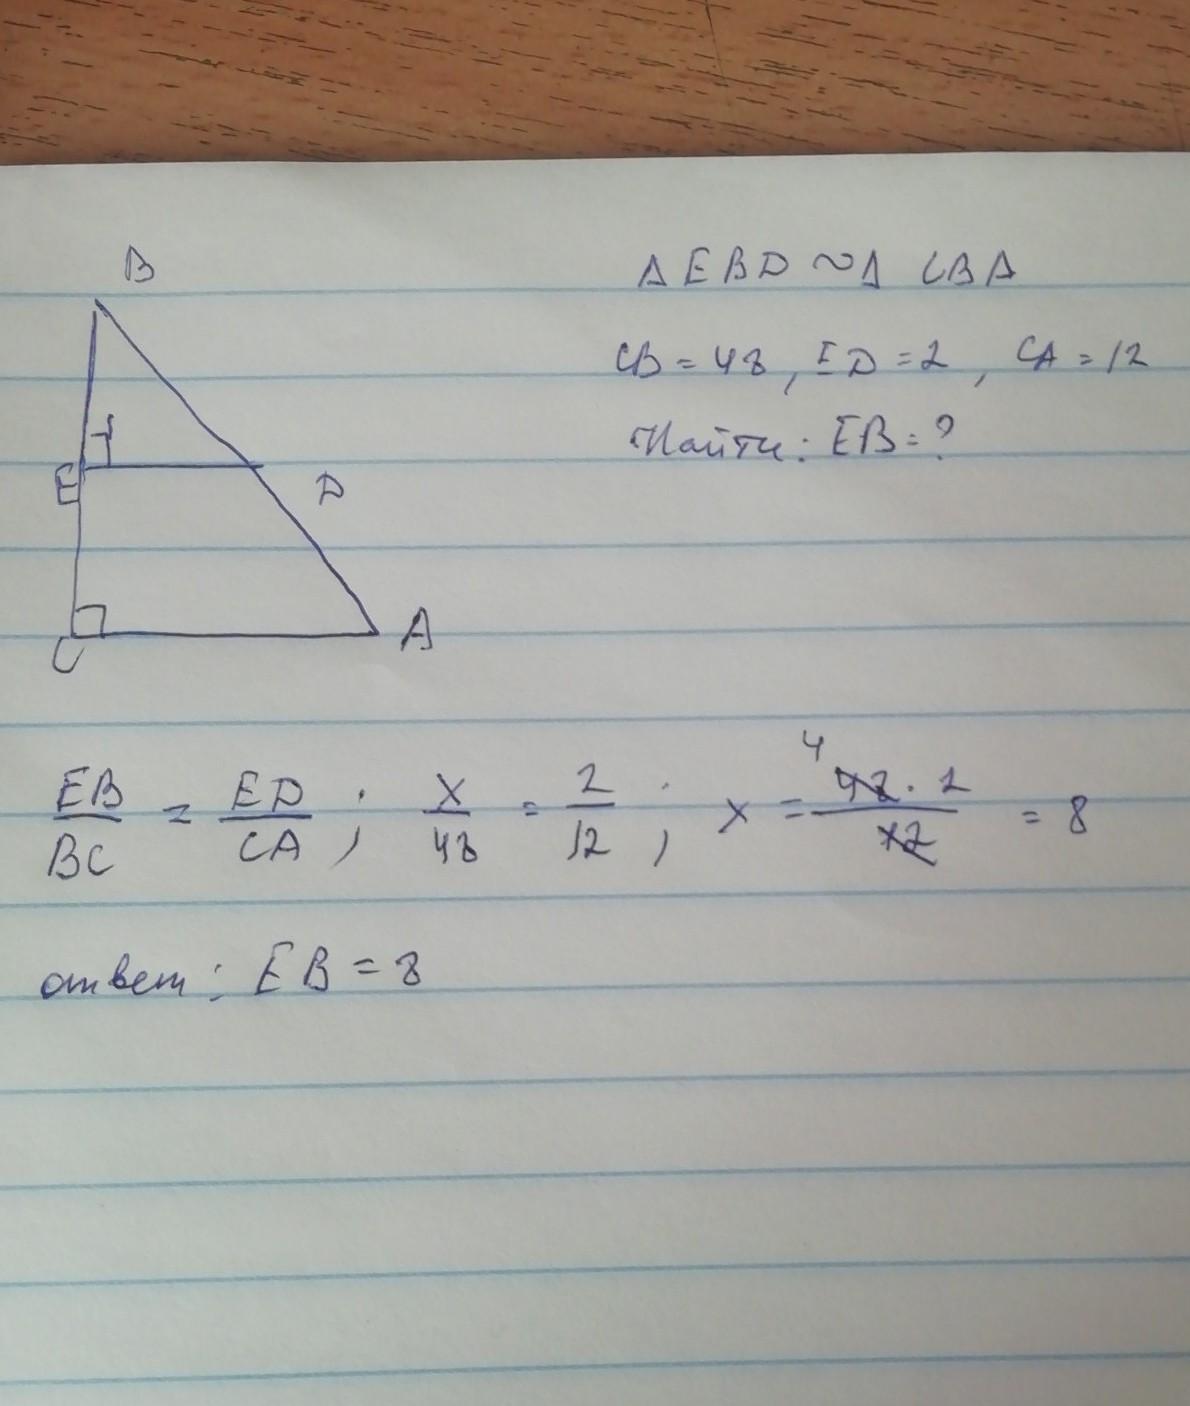 B
Δ EBD ~ Δ CBA
CB = 48, ED = 2, CA = 12
Найти: EB = ?
E
D
C
A
EB/BC = ED/CA ; x/48 = 2/12 ; x = 48 · 2/12 = 8
4
ответ: EB = 8